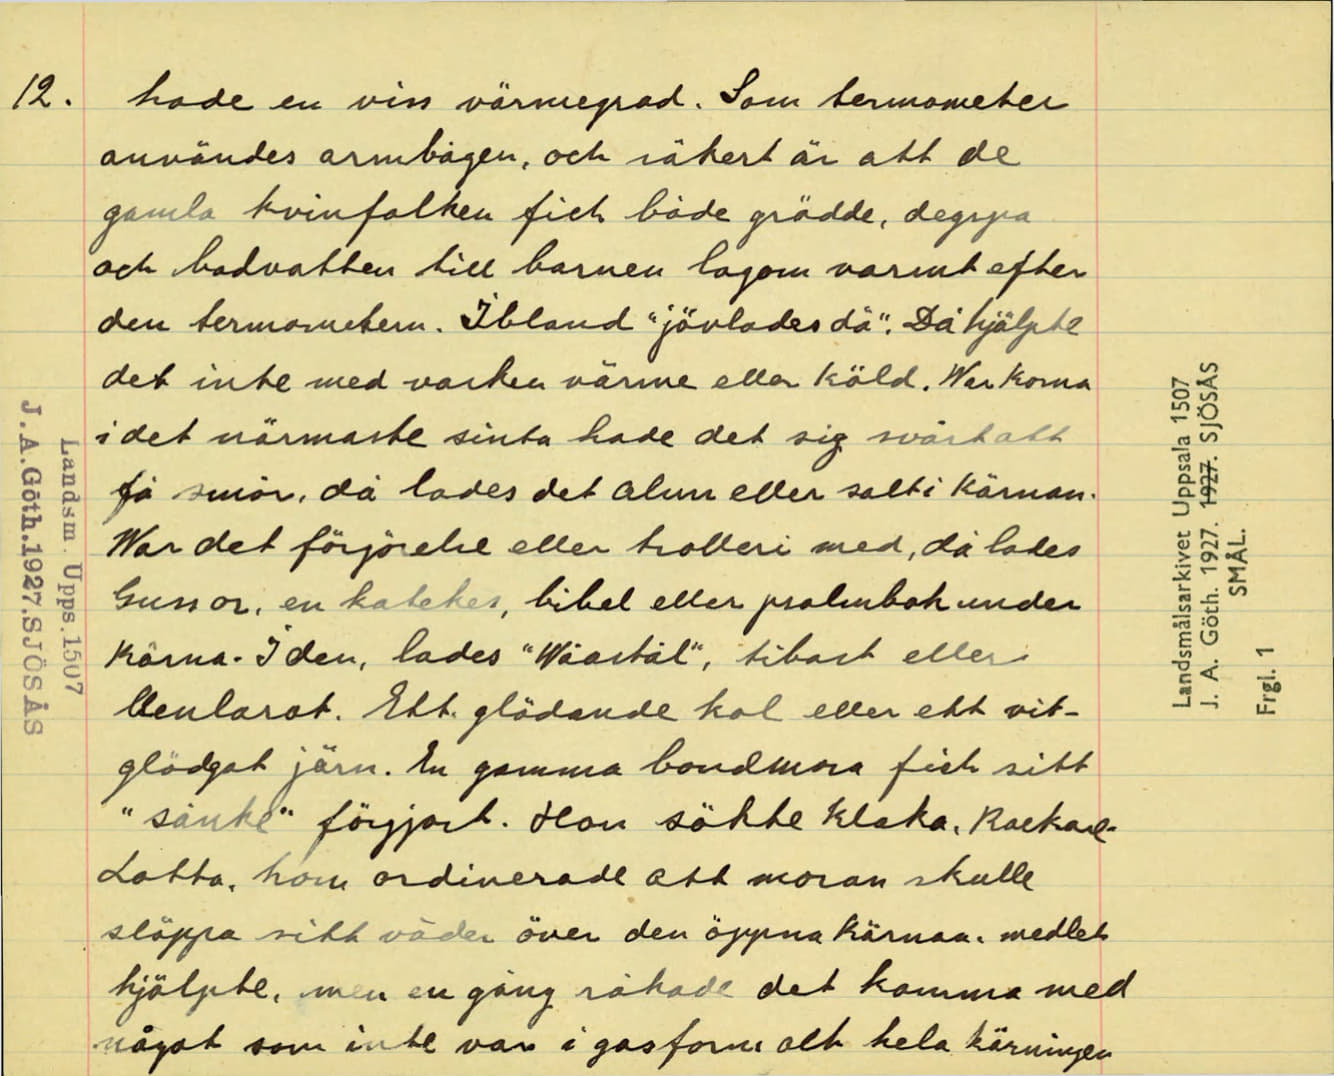 12. hade en viss värmegrad. Som termometer
användes armbågen, och säkert är att de
gamla kvinfolken fick både grädde, degspa
och badvatten till barnen lagom varmt efter
den termometern. Ibland "jävlades dä". Då hjälpte
det inte med varken värme eller köld. War korna
i det närmaste sinta hade det sig svårt att
få smör, då lades det alun eller salt i kärnan.
War det förgörelse eller trolleri med, då lades
Guss or, en katekes, bibel eller psalmbok under
kärna. I den, lades "Wåastål", tibast eller
Venlarot. Ett glödande kol eller ett vit-
glödgat järn. En gamma bondmora fick sitt
"sänke" förgjort. Hon sökte kloka, Rackare-
Lotta, hom ordinerade att moran skulle
släppa sitt väder över den öppna kärnan. medlet
hjälpte, men en gång råkade det komma med
något som inte var i gasform och hela kärningen
Landsm. Upps. 1507
J.A.Göth.1927.SJÖSÅS
Landsmålsarkivet Uppsala 1507
J. A. Göth. 1927. 1927. SJÖSÅS
SMÅL.
Frgl. 1